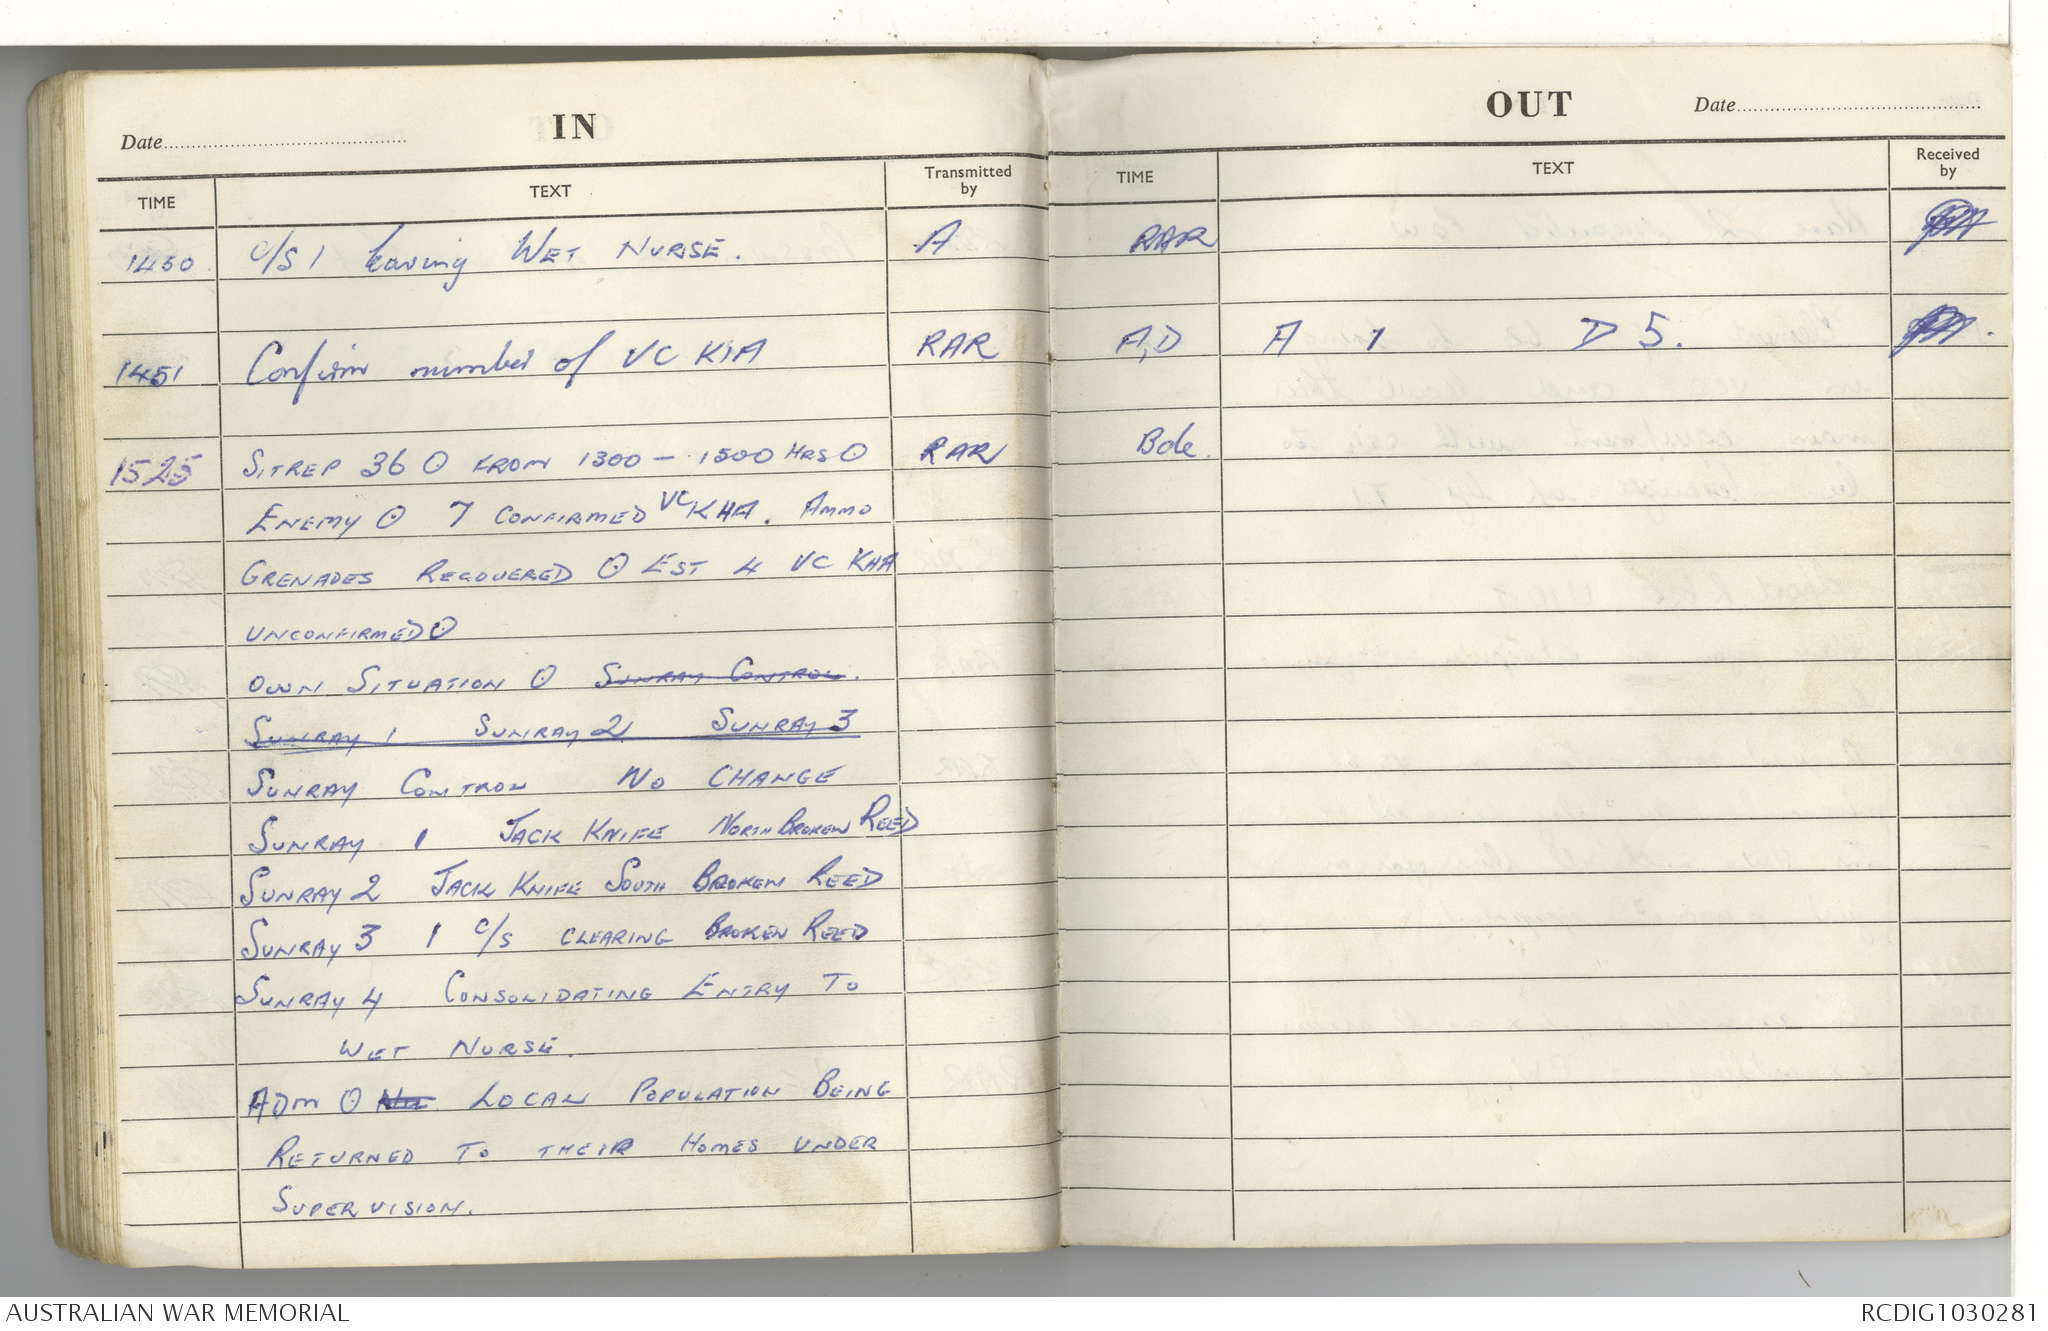 IN
Date
TIME TEXT Transmitted by
1450 C/S 1 leaving WET NURSE. A
1451 Confirm number of VC KIA RAR
1525 SITREP 36 ⊙ FROM 1300 - 1500 HRS ⊙ RAR
ENEMY ⊙ 7 CONFIRMED VC KHA. AMMO
GRENADES RECOVERED ⊙ EST 4 VC KHA
UNCONFIRMED ⊙
OWN SITUATION ⊙ SUNRAY CONTROL.
SUNRAY 1 SUNRAY 2 SUNRAY 3
SUNRAY CONTROL NO CHANGE
SUNRAY 1 JACK KNIFE NORTH BROKEN REED
SUNRAY 2 JACK KNIFE SOUTH BROKEN REED
SUNRAY 3 1 C/S CLEARING BROKEN REED
SUNRAY 4 CONSOLIDATING ENTRY TO
WET NURSE.
ADM ⊙ LOCAL POPULATION BEING
RETURNED TO THEIR HOMES UNDER
SUPERVISION.
OUT
Date
TIME TEXT Received by
RAR
A,D A 1 D 5.
Bde.
AUSTRALIAN WAR MEMORIAL
RCDIG1030281